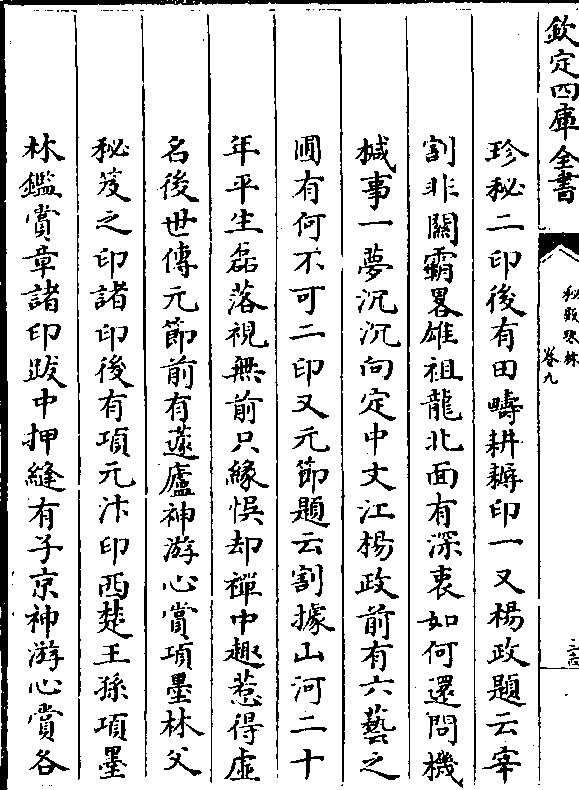 欽定四庫全書
秘殿珠林
卷九
三四
珍秘二印後有田疇耕耨印一又楊政題云宰
割非關霸畧雄祖龍北面有深衷如何還問機
椷事一夢沉沉向定中文江楊政前有六藝之
圃有何不可二印又元節題云割據山河二十
年平生磊落視無前只緣悞却禪中趣惹得虛
名後世傳元節前有蘧廬神游心賞項墨林父
秘笈之印諸印後有項元汴印西楚王孫項墨
林鑑賞章諸印跋中押縫有子京神游心賞各